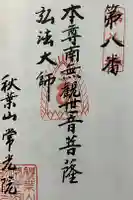 第八番
本尊南無観世音菩薩
弘法大師
秋葉山常光院